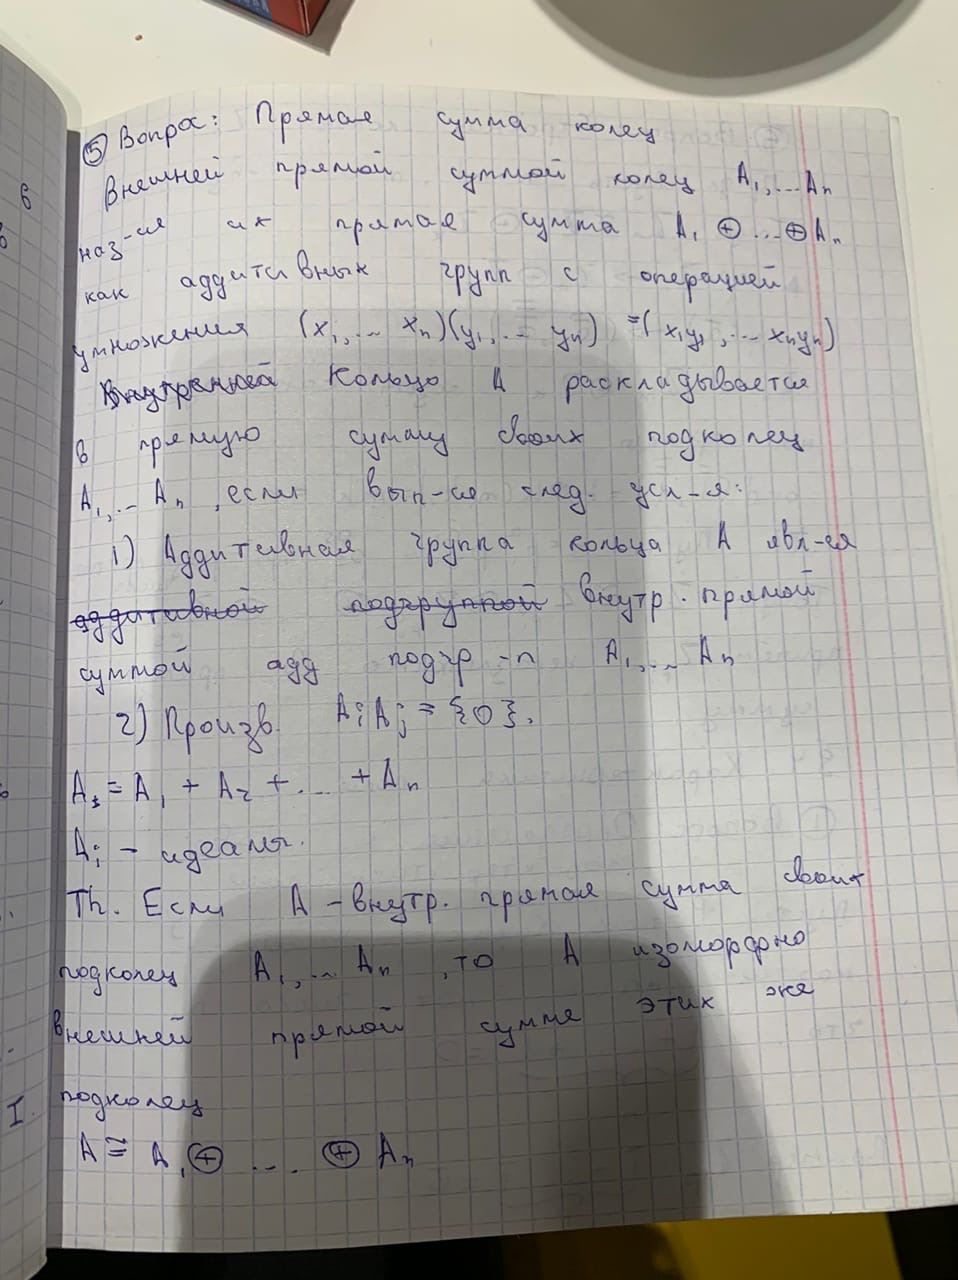 ⑤ Вопрос: Прямая сумма колец
Внешней прямой суммой колец A₁,... Aₙ
наз-ся их прямая сумма A₁ ⊕ ... ⊕ Aₙ
как аддитивных групп с операцией
умножения (x₁,... xₙ)(y₁,... yₙ) = (x₁y₁,... xₙyₙ)
Внутренней Кольцо A раскладывается
в прямую сумму своих подколец
A₁,... Aₙ, если вып-ся след. усл-я:
1) Аддитивная группа кольца A явл-ся
аддитивной подгруппой внутр. прямой
суммой адд подгр-п A₁,... Aₙ
2) Произв. AᵢAⱼ = {0}.
A = A₁ + A₂ + ... + Aₙ
Aᵢ - идеалы.
Th. Если A - внутр. прямая сумма своих
подколец A₁,... Aₙ, то A изоморфно
внешней прямой сумме этих же
подколец
A ≅ A₁ ⊕ ... ⊕ Aₙ
в
I